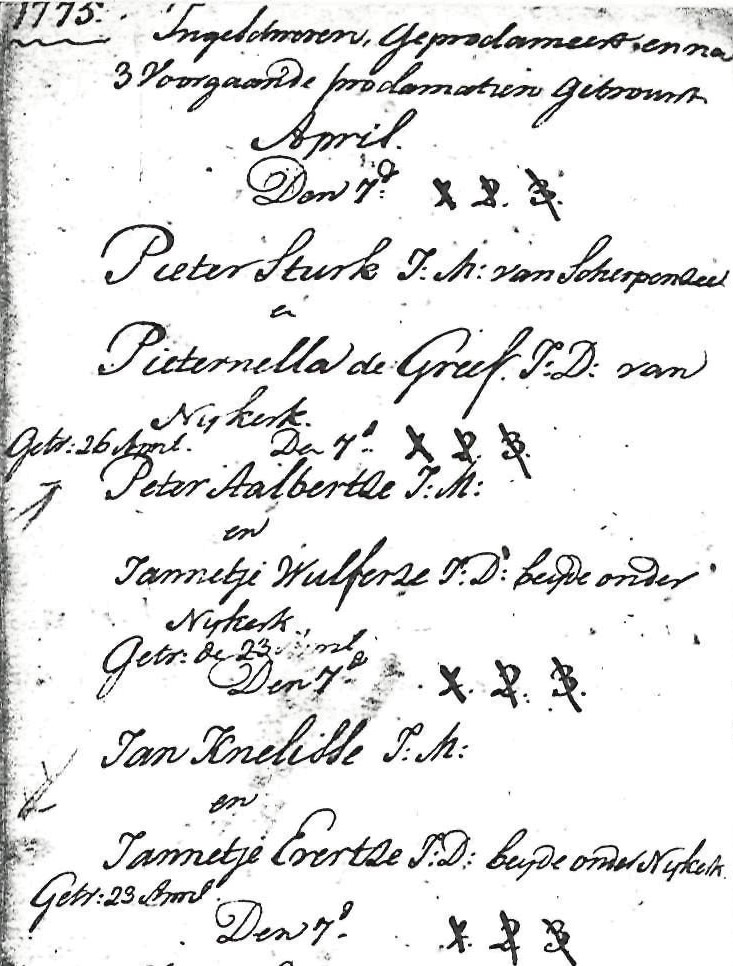 1775.
Ingeschreven, Geproclameert, en na
3 Voorgaande proclamatien Getrouwt
April.
Den 7d 1. 2. 3.
Pieter Sturk J: M: van Scherpenzeel
en
Pieternella de Greef. J: D: van
Nykerk.
Getr: 26 April. De 7d 1. 2. 3.
Peter Aalbertze J: M:
en
Jannetje Wulferze J: D: beyde onder
Nykerk.
Getr: de 23 April
Den 7d 1. 2. 3.
Jan Knelisse J: M:
en
Jannetje Evertze J: D: beyde onder Nykerk.
Getr: 23 April.
Den 7d. 1. 2. 3.